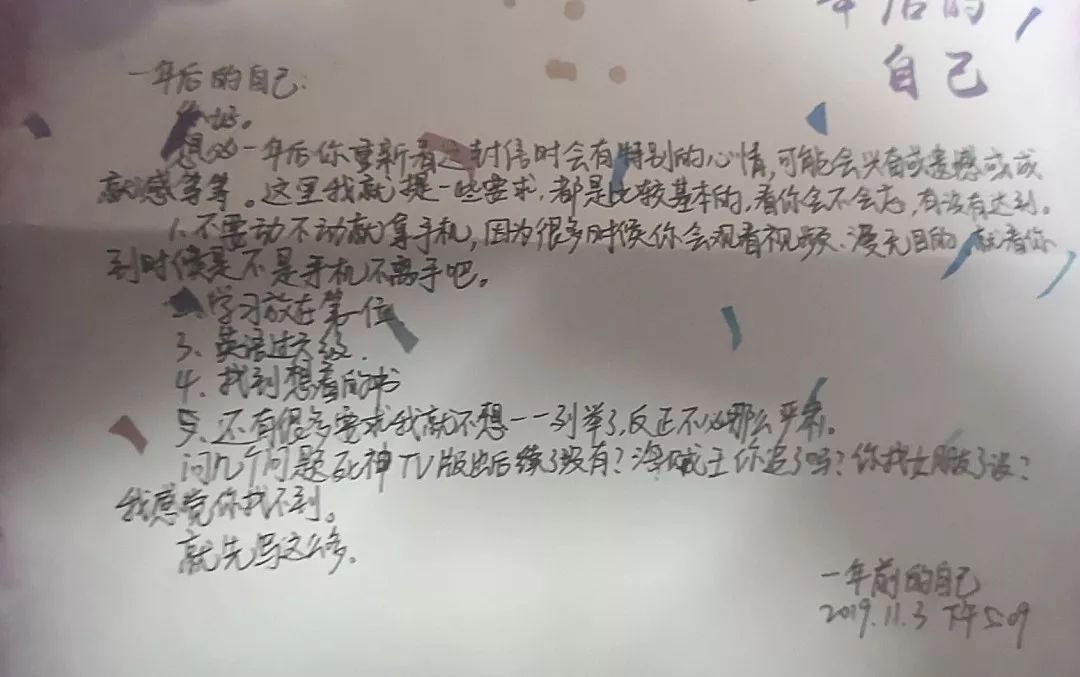 年后的
自己
一年后的自己:
你好。
想必一年后你重新看这封信时会有特别的心情,可能会兴奋或遗憾或成
就感等等。这里我就提一些要求,都是比较基本的,看你会不会忘,有没有达到。
1、不要动不动就拿手机,因为很多时候你会观看视频、漫无目的,就看你
到时候是不是手机不离手吧。
2、学习放在第一位
3、英语过六级.
4、找到想看的书
5、还有很多要求我就不想一一列举了,反正不必那么严肃。
问几个问题死神TV版出后续了没有?海贼王你追了吗?你找女朋友了没?
我感觉你找不到。
就先写这么多。
一年前的自己
2019.11.3 下午5:09